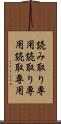 読み取り専
用読取り専
用読取専用